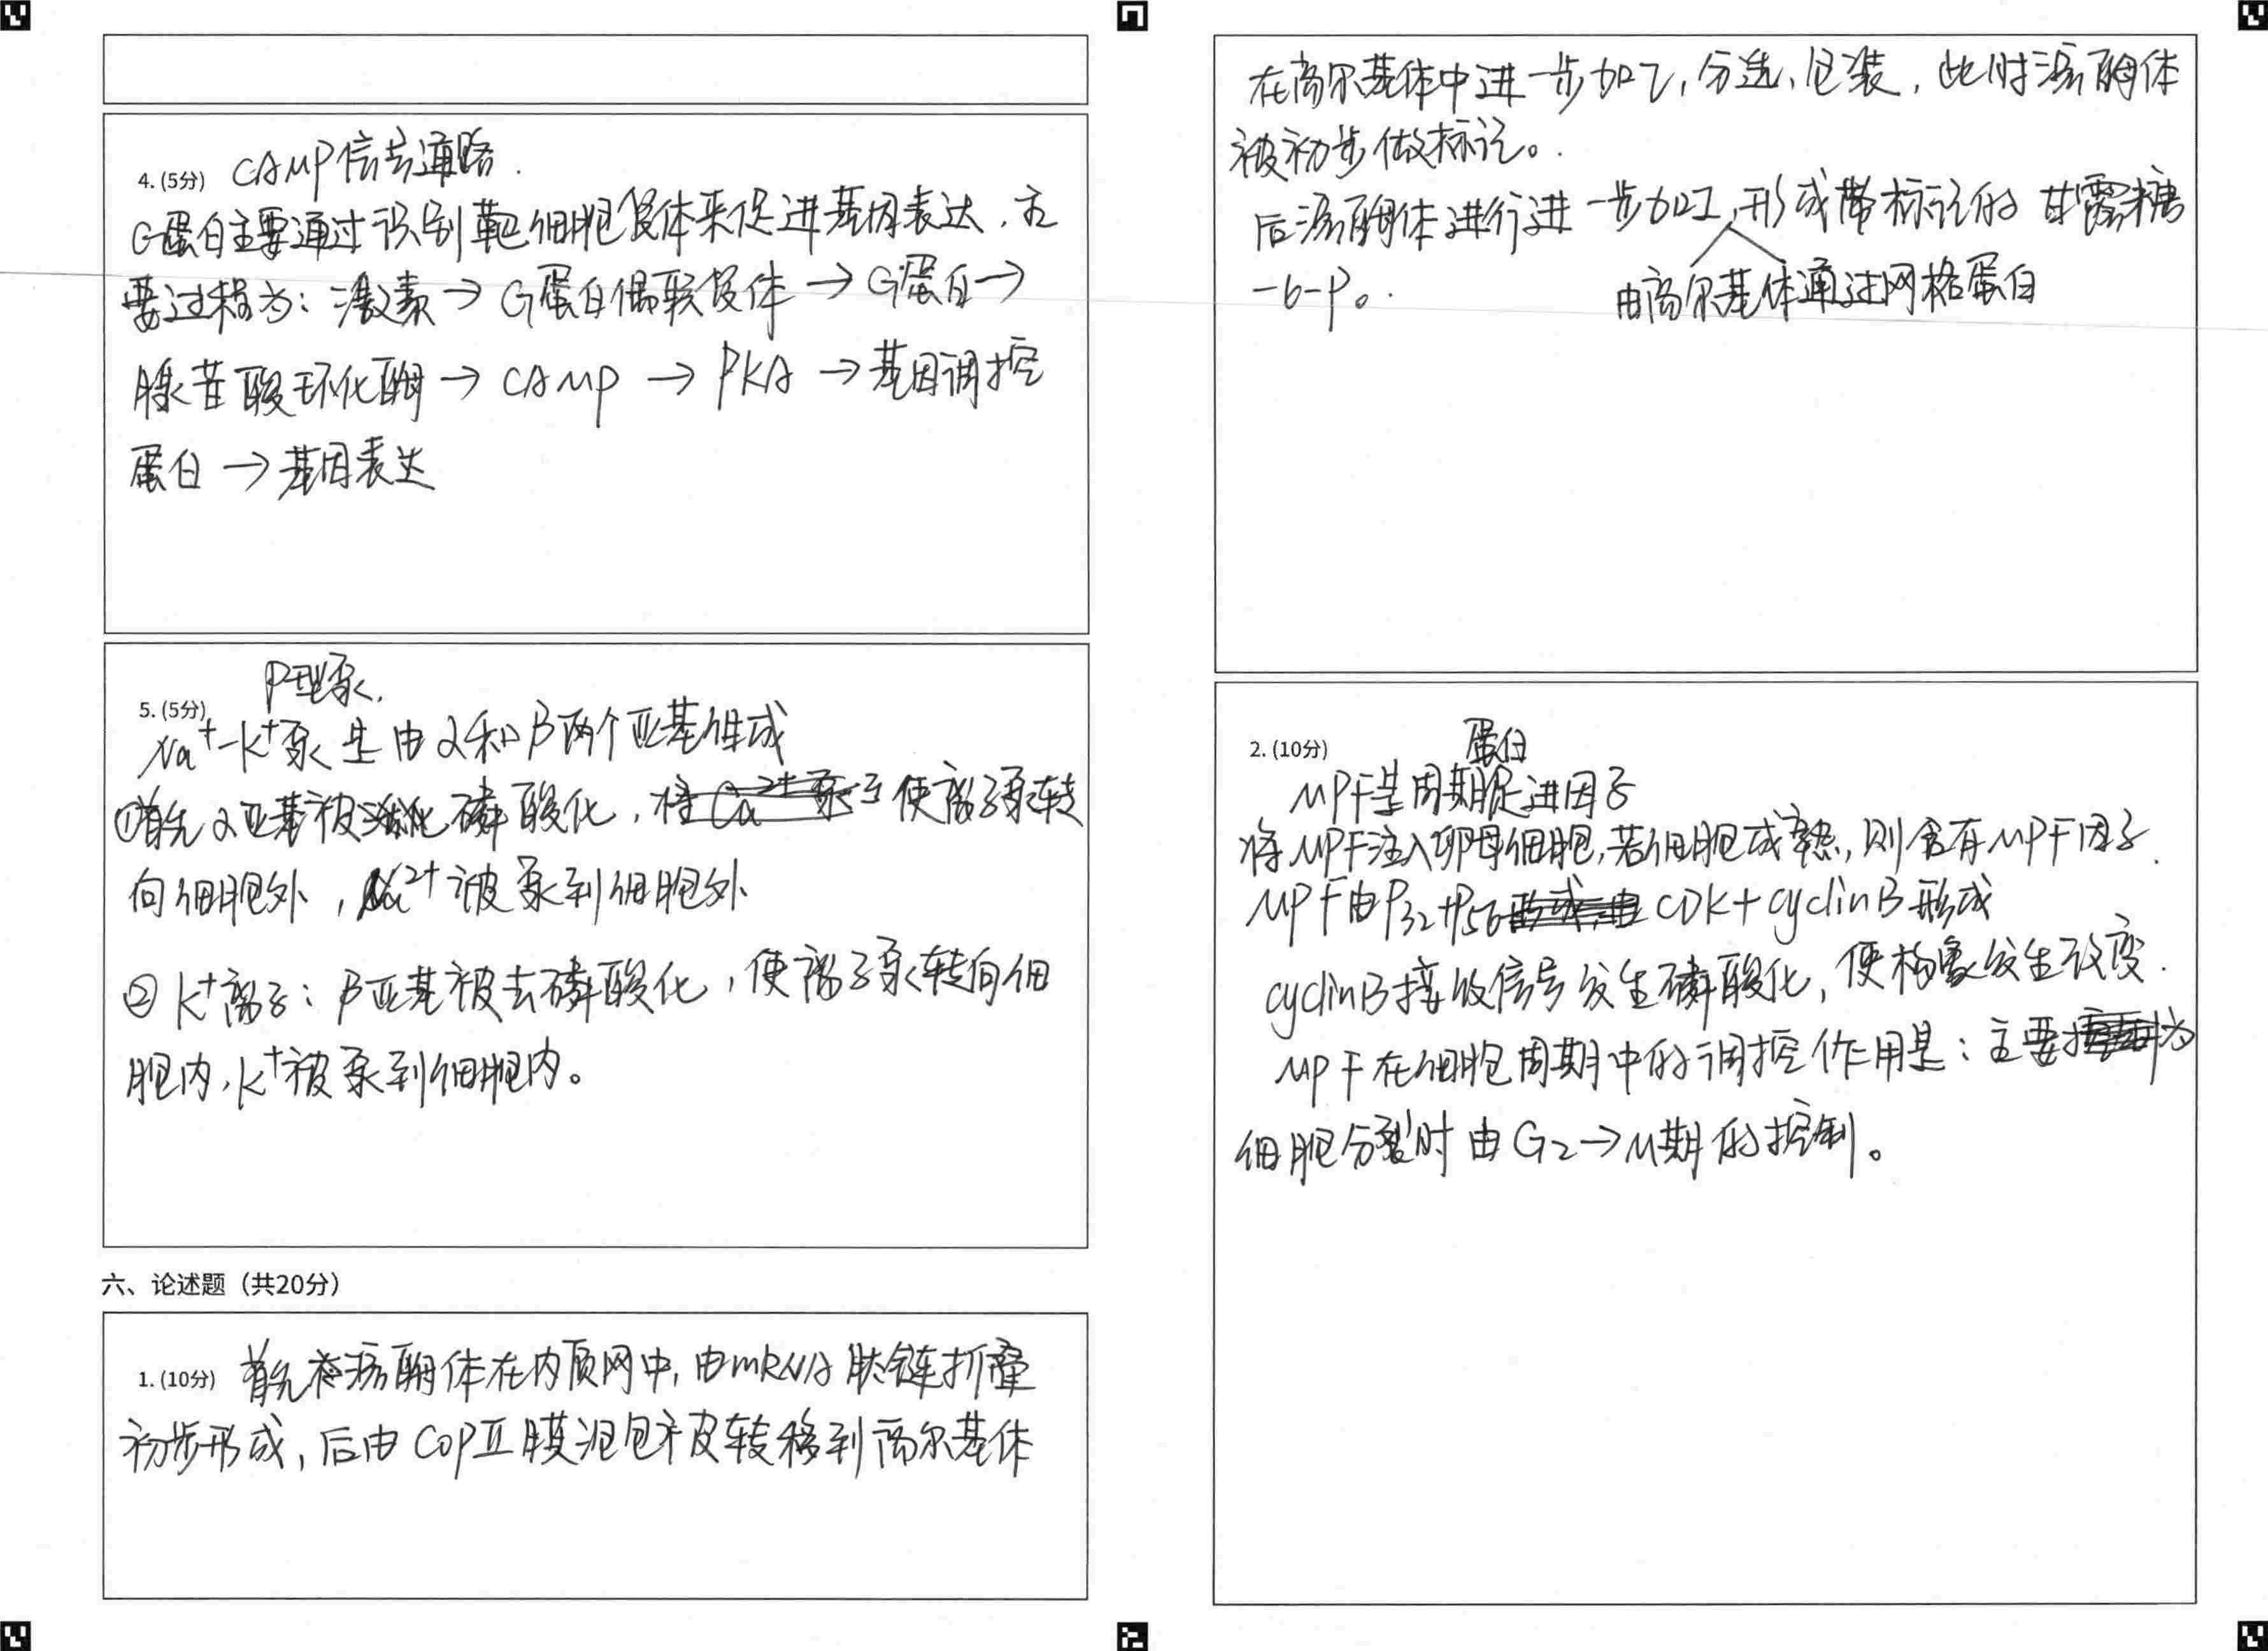 4. (5分) cAMP信号通路.
G蛋白主要通过识别靶细胞受体来促进基因表达.主
要过程为: 激素→G蛋白偶联受体→G蛋白→
腺苷酸环化酶→cAMP→PKA→基因调控
蛋白→基因表达
P型泵.
5. (5分)
Na⁺-K⁺泵是由α和β两个亚基组成
①首先α亚基被磷酸化,使离子泵转
向细胞外,²⁺被泵到细胞外
②K⁺离子:β亚基被去磷酸化,使离子泵转向细
胞内,K⁺被泵到细胞内。
六、论述题(共20分)
1. (10分) 首先溶酶体在内质网中,由mRNA肽链折叠
初步形成,后由COPⅡ膜泡包被转移到高尔基体
在高尔基体中进一步加工,分选、包装,此时溶酶体
被初步做标记。
后溶酶体进行进一步加工,形成带标记的甘露糖
-6-P。
由高尔基体通过网格蛋白
2. (10分)
蛋白
MPF是周期促进因子
将MPF注入卵母细胞,若细胞成熟,则含有MPF因子.
MPF由P32+P56 CDK+cyclinB形成
cyclinB接收信号发生磷酸化,使构象发生改变.
MPF在细胞周期中的调控作用是:主要为
细胞分裂时由G₂→M期的控制。